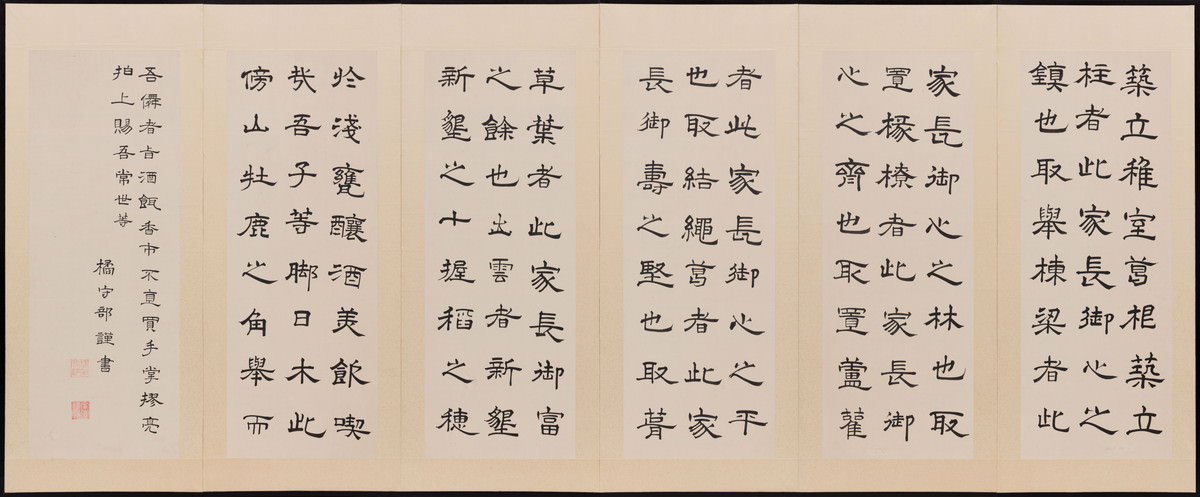 築立稚室葛根築立
柱者此家長御心之
鎮也取舉棟梁者此
家長御心之林也取
置椽橑者此家長御
心之齊也取置蘆雚
者此家長御心之平
也取結繩葛者此家
長御壽之堅也取葺
草葉者此家長御富
之餘也出雲者新墾
新墾之十握稻之穗
於淺甕釀酒美飲喫
哉吾子等脚日木此
傍山牡鹿之角舉而
吾儛者旨酒餌香市不直買手掌摎亮
拍上賜吾常世等
橘守部謹書